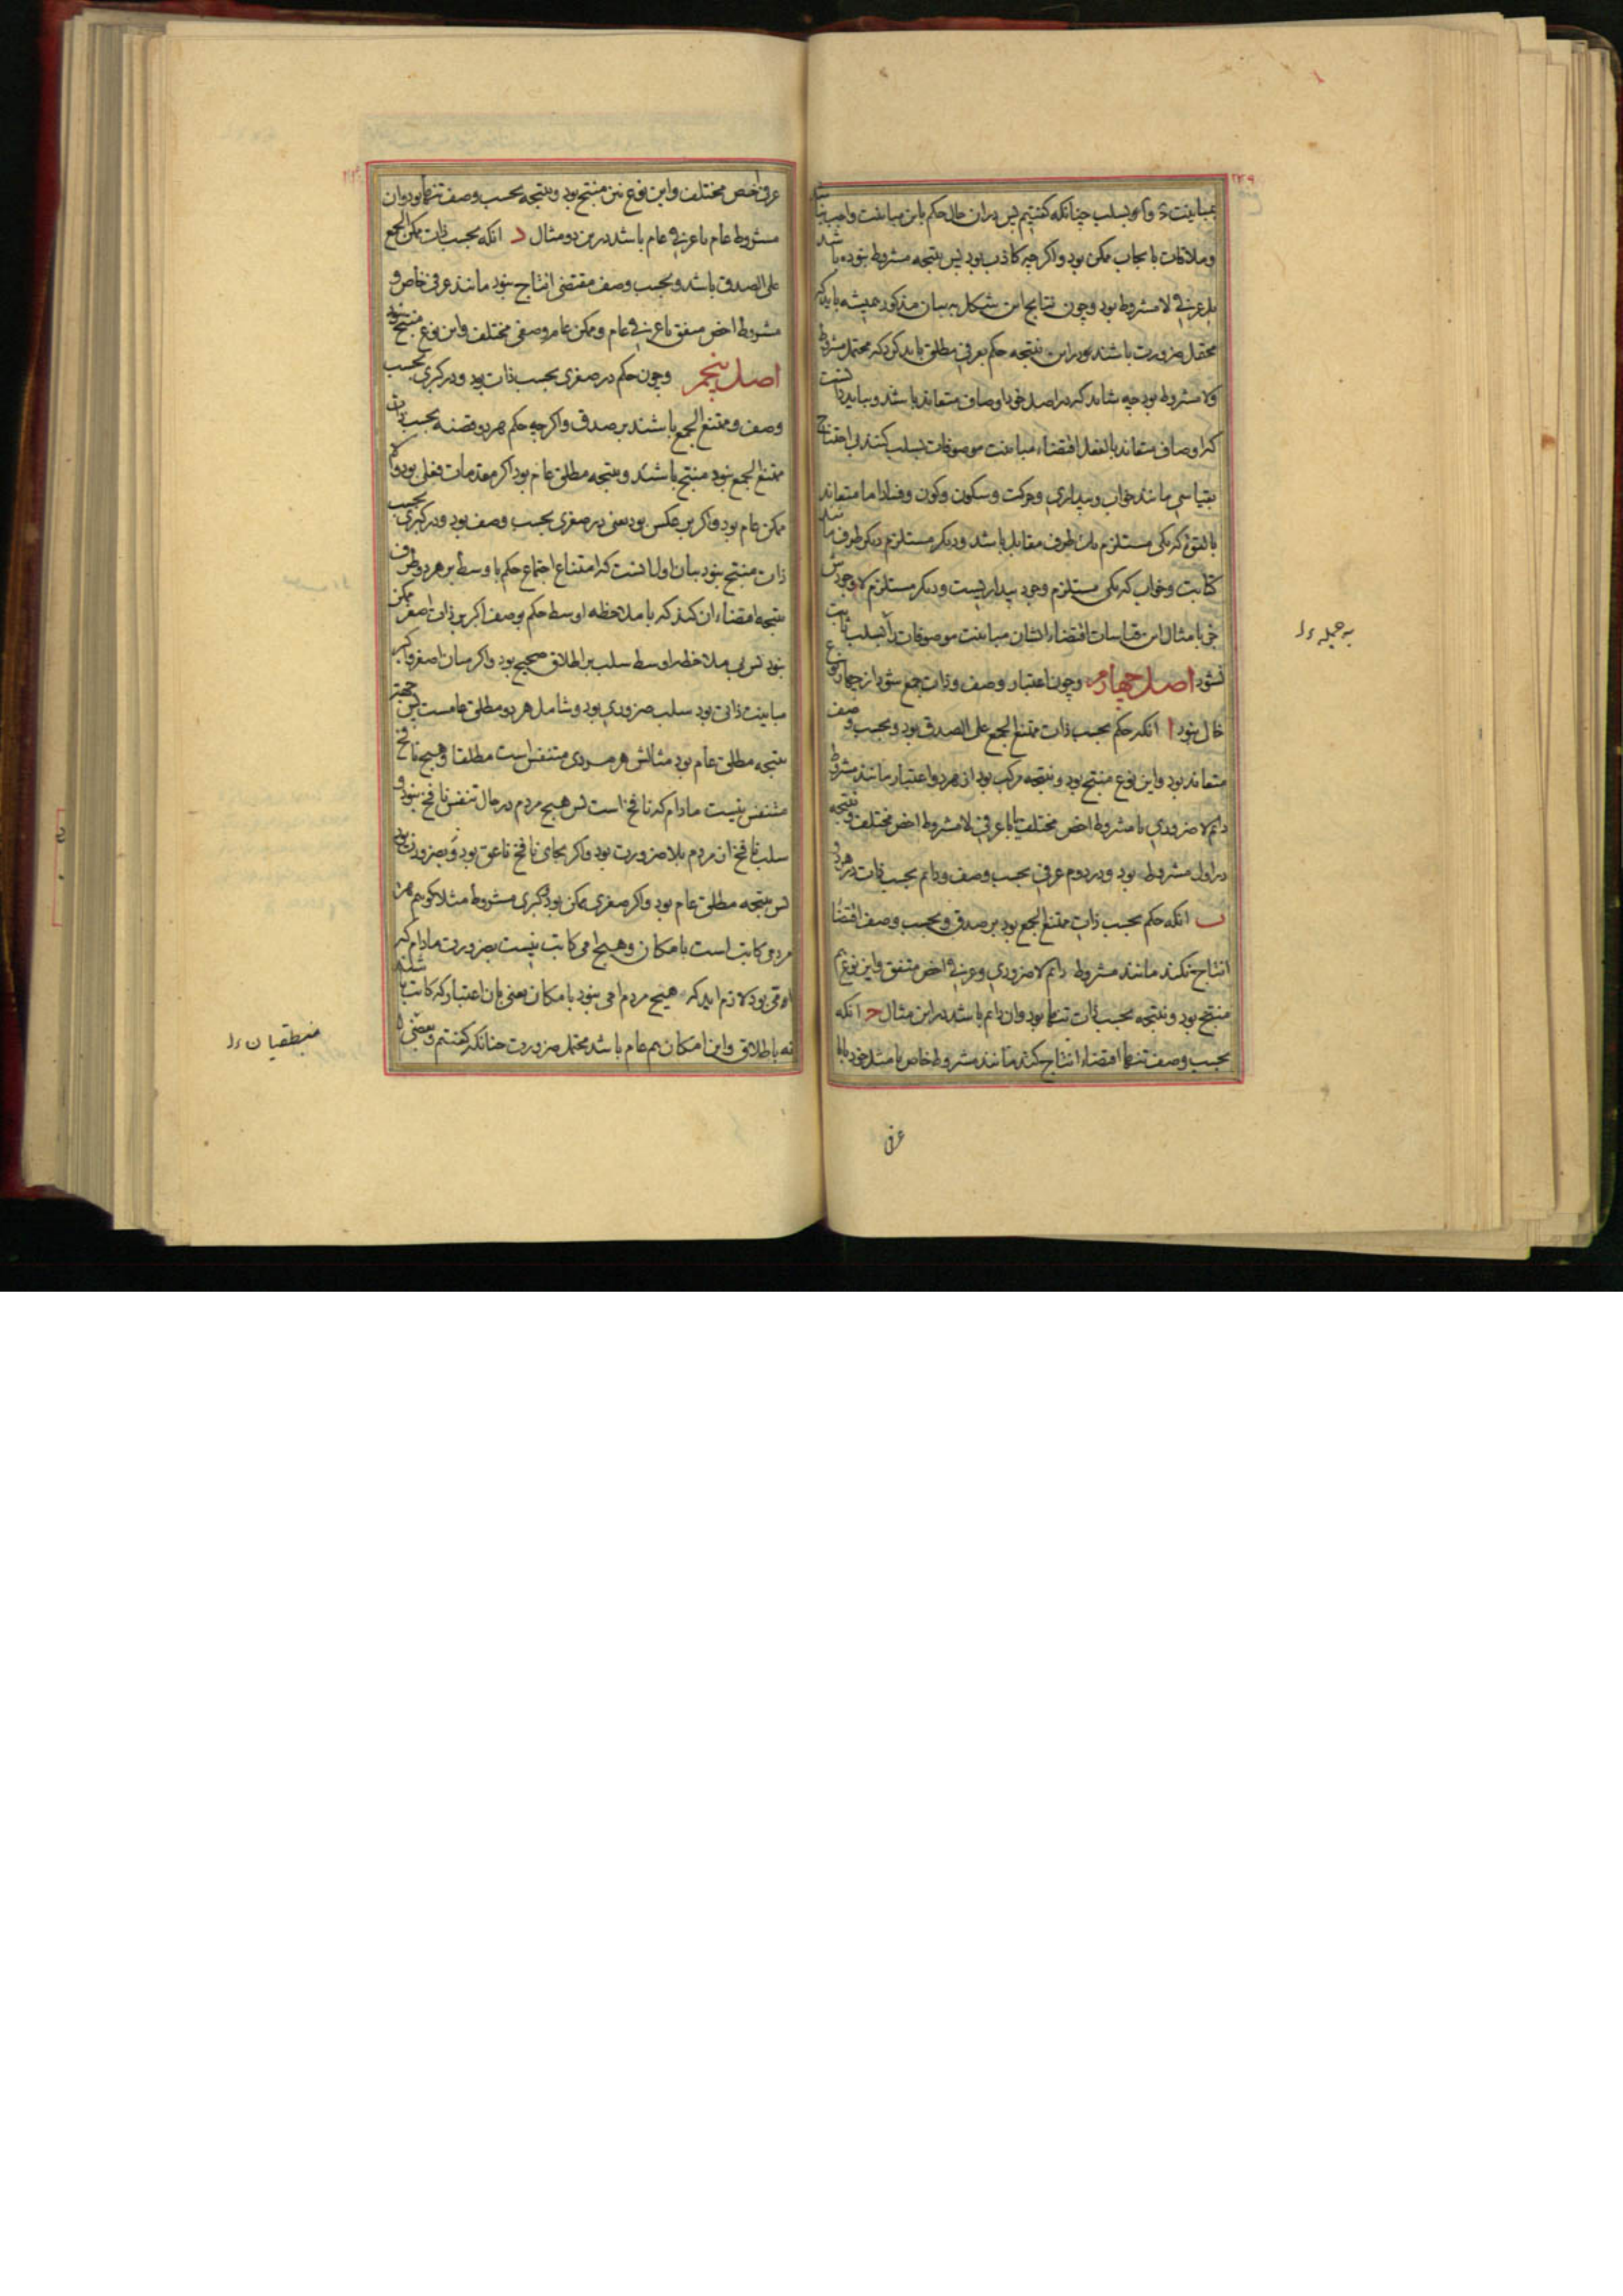 ۲۳۹
بمباینت د و ا و بسلب چنانکه گفتیم پس دران حال حکم باین مباینت واجب باشد
و ملاقات بایجاب ممکن بود و اگرچه کاذب بود پس نتیجه مشروط نبوده باشد
بل عرفی لا مشروط بود و چون نتایج این شکل به بیان مذکور همیشه باید که
محتمل ضرورت باشند و در این نتیجه حکم بعرفی مطلق باید کرد که محتمل مشروط
ولا مشروط بود چه شاید که در اصل خود اوصاف متعاند باشد و بباید دانست
که اوصاف متعاند بالفعل اقتضاء مباینت موصوفات بسلب کنند بی احتیاج
بقیاسی مانند خواب و بیداری و حرکت و سکون و کون و فساد اما متعاند
بالقوة که یکی مستلزم یک طرف مقابل باشد و دیگر مستلزم دیگر طرف مانند
کتابت و خواب که یکی مستلزم وجود بیداریست و دیگر مستلزم لا وجودش
جز بامثال این قیاسات اقتضاء ایشان مباینت موصوفات را بسلب ثابت
نشود اصل چهارم و چون اعتبار وصف و ذات جمع شود از چهار نوع
خالی نبود ا انکه حکم بحسب ذات ممتنع الجمع علی الصدق بود و بحسب وصف
متعاند بود و این نوع منتج بود و نتیجه مرکب بود از هر دو اعتبار مانند مشروط
دائم لا ضروری با مشروط اخص مختلف یا با عرفی لا مشروط اخص مختلف و نتیجه
در اول مشروط بود و در دوم عرفی بحسب وصف و دائم بحسب ذات در هر دو
ب انکه حکم بحسب ذات ممتنع الجمع بود بر صدق و بحسب وصف اقتضا
انتاج نکند مانند مشروط دائم لا ضروری و عرفی اخص متفق و این نوع هم
منتج بود و نتیجه بحسب ذات تنها بود و ان دائم باشد در این مثال ج انکه
بحسب وصف تنها اقتضاء انتاج کند مانند مشروط خاص با مثل خود یا با
عرفی
به جمله را
عرفی اخص مختلف و این نوع نیز منتج بود و نتیجه بحسب وصف تنها بود و ان
مشروط عام یا عرفی عام باشد درین دو مثال د انکه بحسب ذات ممکن الجمع
علی الصدق باشد و بحسب وصف مقتضی انتاج نبود مانند عرفی خاص و
مشروط اخص متفق یا عرفی عام و ممکن عام وصفی مختلف و این نوع منتج نبود
اصل پنجم و چون حکم در صغری بحسب ذات بود و در کبری بحسب
وصف و ممتنع الجمع باشند بر صدق و اگرچه حکم هر دو قضیه بحسب ذات
ممتنع الجمع نبود منتج باشند و نتیجه مطلق عام بود اگر مقدمات فعلی بود و الا
ممکن عام بود و اگر بر عکس بود یعنی در صغری بحسب وصف بود و در کبری بحسب
ذات منتج نبود بیان اول انست که امتناع اجتماع حکم با وسط بر هر دو طرف
نتیجه اقتضاء ان کند که با ملاحظه اوسط حکم بوصف اکبر بر ذات اصغر ممکن
نبود پس بی ملاحظه اوسط سلب بر اطلاق صحیح بود و اگر میان اصغر و اکبر
مباینت ذاتی بود سلب ضروری بود و شامل هر دو مطلق عامست پس جهت
نتیجه مطلق عام بود مثالش هر مردمی متنفس است مطلقا و هیچ نافخ
متنفس نیست مادام که نافخ است پس هیچ مردم در حال تنفس نافخ نبود و
سلب نافخ از مردم بلا ضرورت بود و اگر بجای نافخ ناعق بود و بضرورت بود
پس نتیجه مطلق عام بود و اگر صغری ممکن بود و کبری مشروط مثلا گوییم هر
مردمی کاتب است بامکان و هیچ امی کاتب نیست بضرورت مادام که
امی بود لازم اید که هیچ مردم امی نبود بامکان یعنی بان اعتبار که کاتب باشد
نه باطلاق و این امکان هم عام باشد محتمل ضرورت چنانکه گفتیم و بعضی
منطقیان را